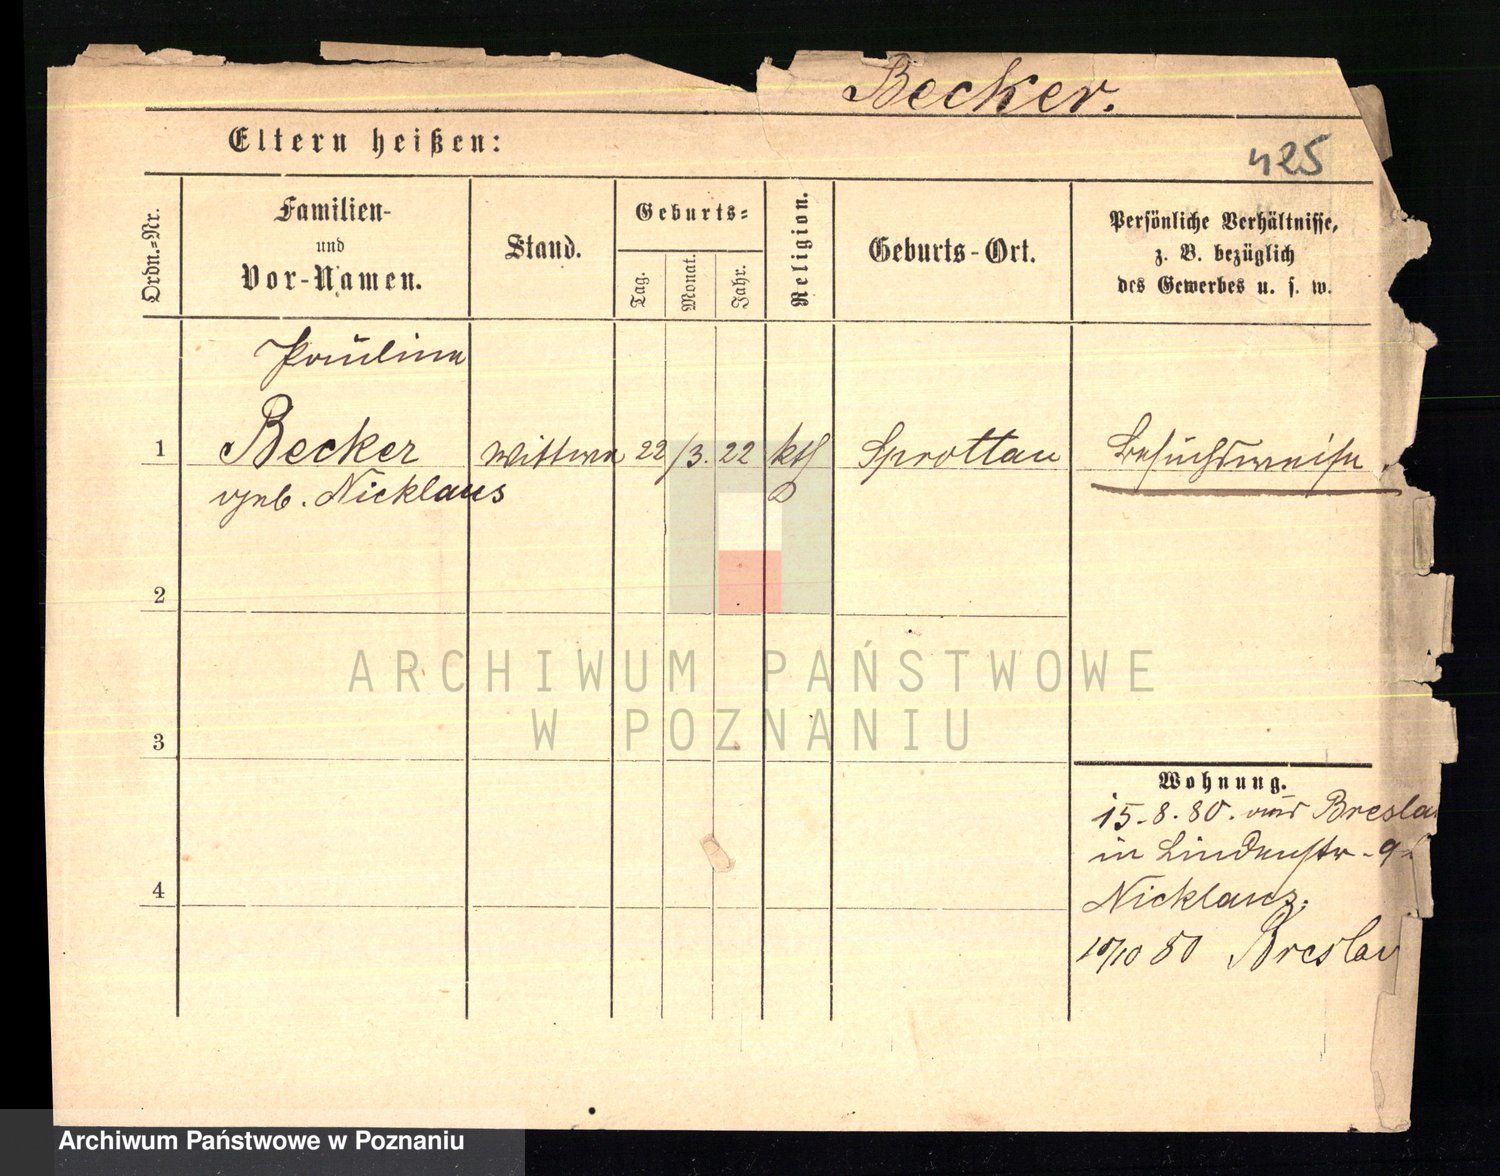 Becker.
Eltern heißen:
425
Ordn.=Nr.
Familien-
und
Vor-Namen.
Stand.
Geburts=
Tag.
Monat.
Jahr.
Religion.
Geburts-Ort.
Persönliche Verhältnisse,
z. B. bezüglich
des Gewerbes u. s. w.
Pauline
1 Becker Wittwe 22 /3. 22 kth Sprottau Besuchsweise.
geb. Nicklaus
2
3
4
Wohnung.
15.8.80. aus Breslau
in Lindenstr. 9
Nicklaus.
10/10 80 Breslau
ARCHIWUM PAŃSTWOWE
W POZNANIU
Archiwum Państwowe w Poznaniu